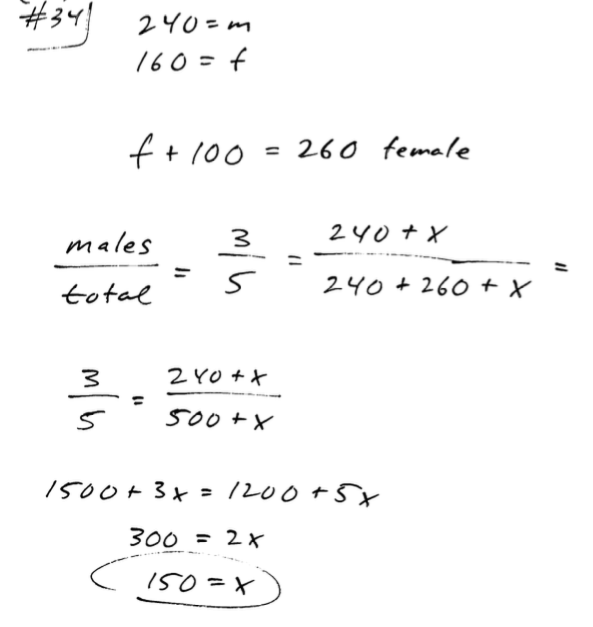 #34
240 = m
160 = f
f + 100 = 260 female
males/total = 3/5 = 240 + x/240 + 260 + x =
3/5 = 240 + x/500 + x
1500 + 3x = 1200 + 5x
300 = 2x
150 = x